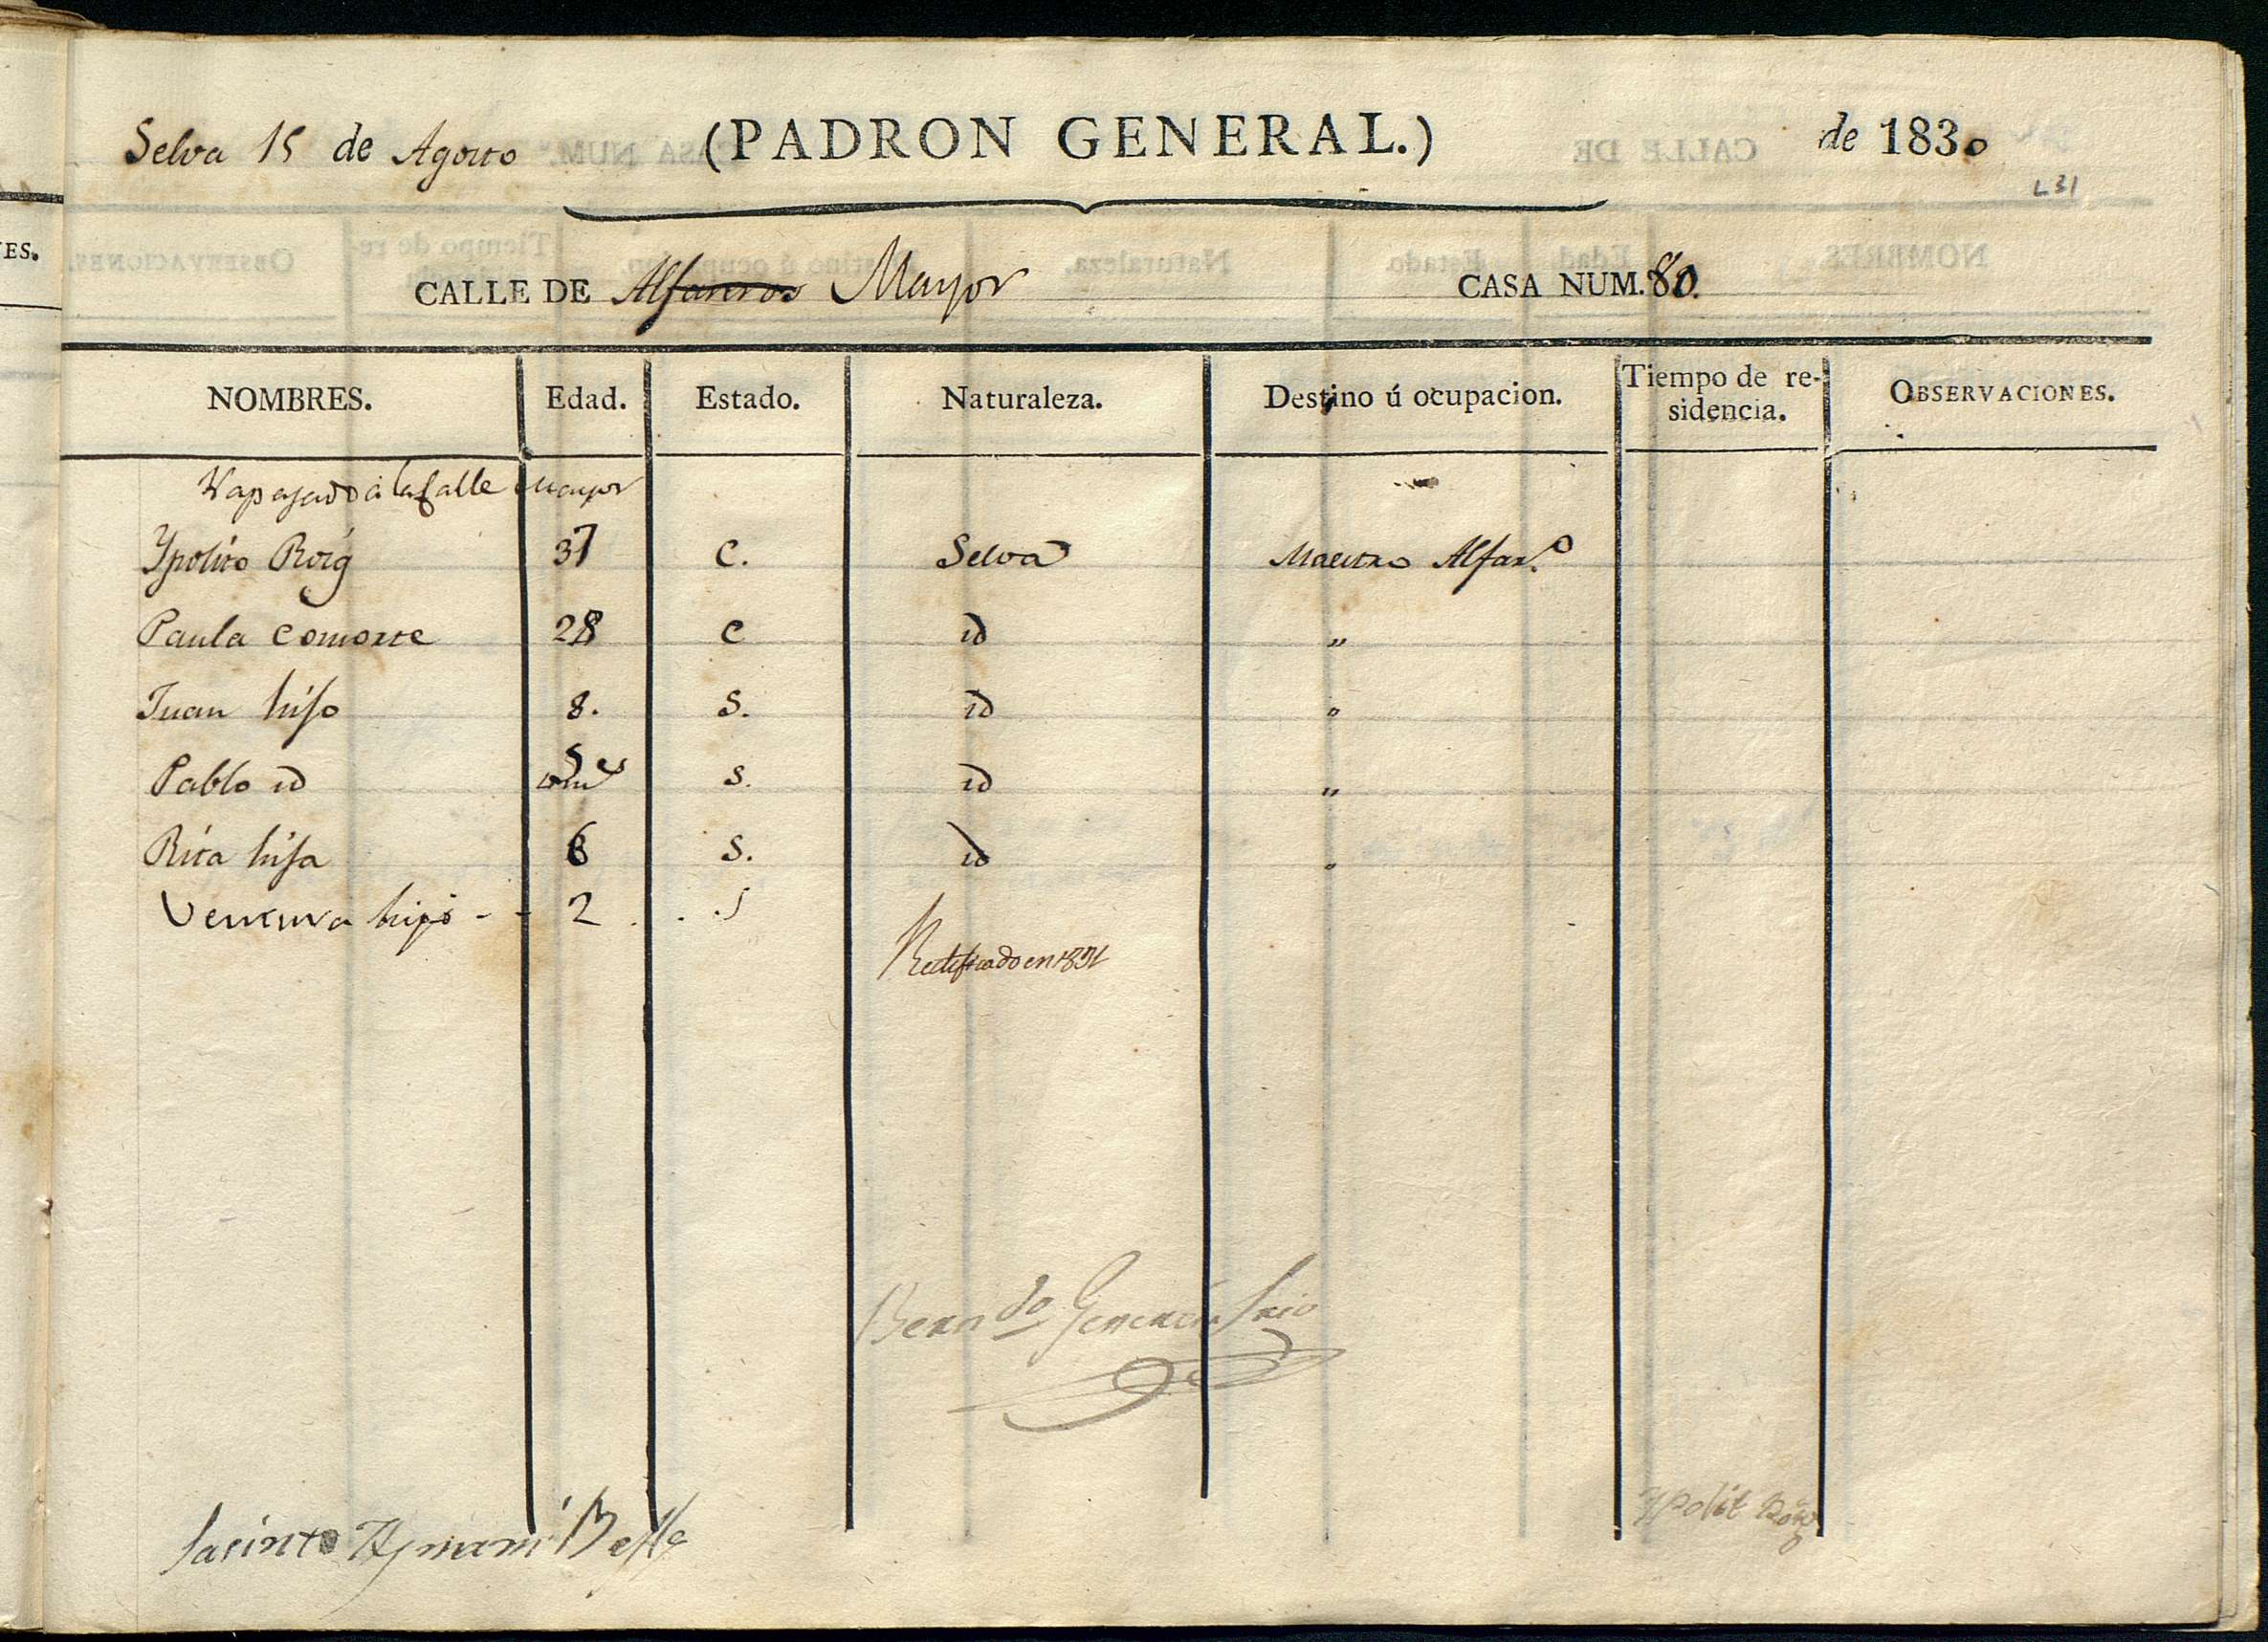 Selva 15 de Agosto (PADRON GENERAL.) de 1830
L31
ES.
CALLE DE Alfareros Mayor CASA NUM. 80.
NOMBRES. Edad. Estado. Naturaleza. Destino ú ocupacion. Tiempo de re- OBSERVACIONES.
sidencia.
a la Calle mayor
Ypolito Roig 37 C. Selva Maestro Alfar.o
Paula Consorte 28 C id "
Juan hijo 8. S. id "
Pablo id S. id "
Rita hija 6 S. id "
Ventura hijo - - 2 . . S
Rectificado en 1831
Bern.do Srio
Ypolit Roig
Jacinto Aymami Bella